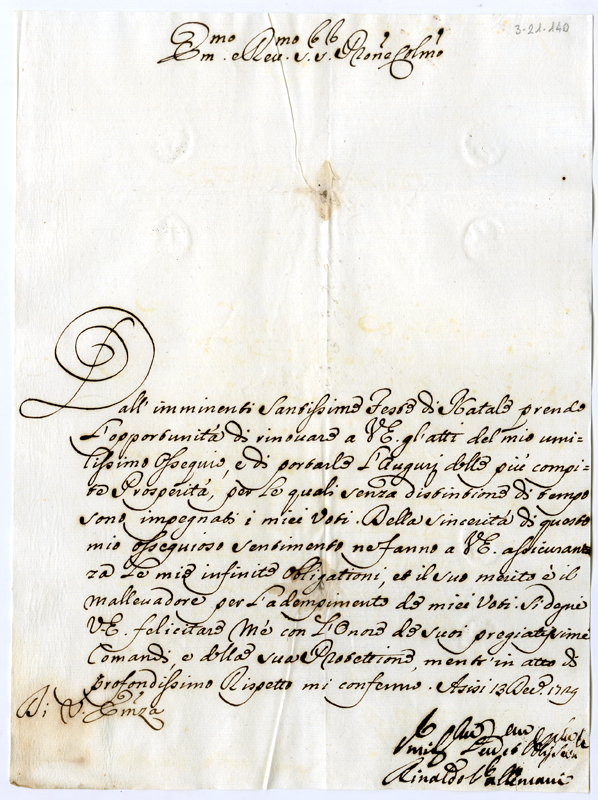 3-21-140
Em.mo e Rev.mo S.r S.r Pron.e Colmo
Dall' imminenti Santissime Feste di Natale prendo
l'opportunità di rinovare a V.E. gl'atti del mio umi-
lissimo Ossequio, e di portarle l'Augurj delle più compi-
te Prosperità, per le quali senza distintione di tempo
sono impegnati i miei Voti. Della sincerità di questo
mio ossequioso sentimento ne fanno a V.E. assicuran-
za le mie infinite obligationi, et il suo merito è il
mallevadore per l'adempimento de miei Voti. Si degni
V.E. felicitare Mé con l'Onore de suoi pregiatissimi
Comandi, e della sua Protettione, mentr'in atto di
profondissimo Rispetto mi confermo. Asisi 13 Dec.e 1729
Di V. Em̃za
Rinaldo Vallemani